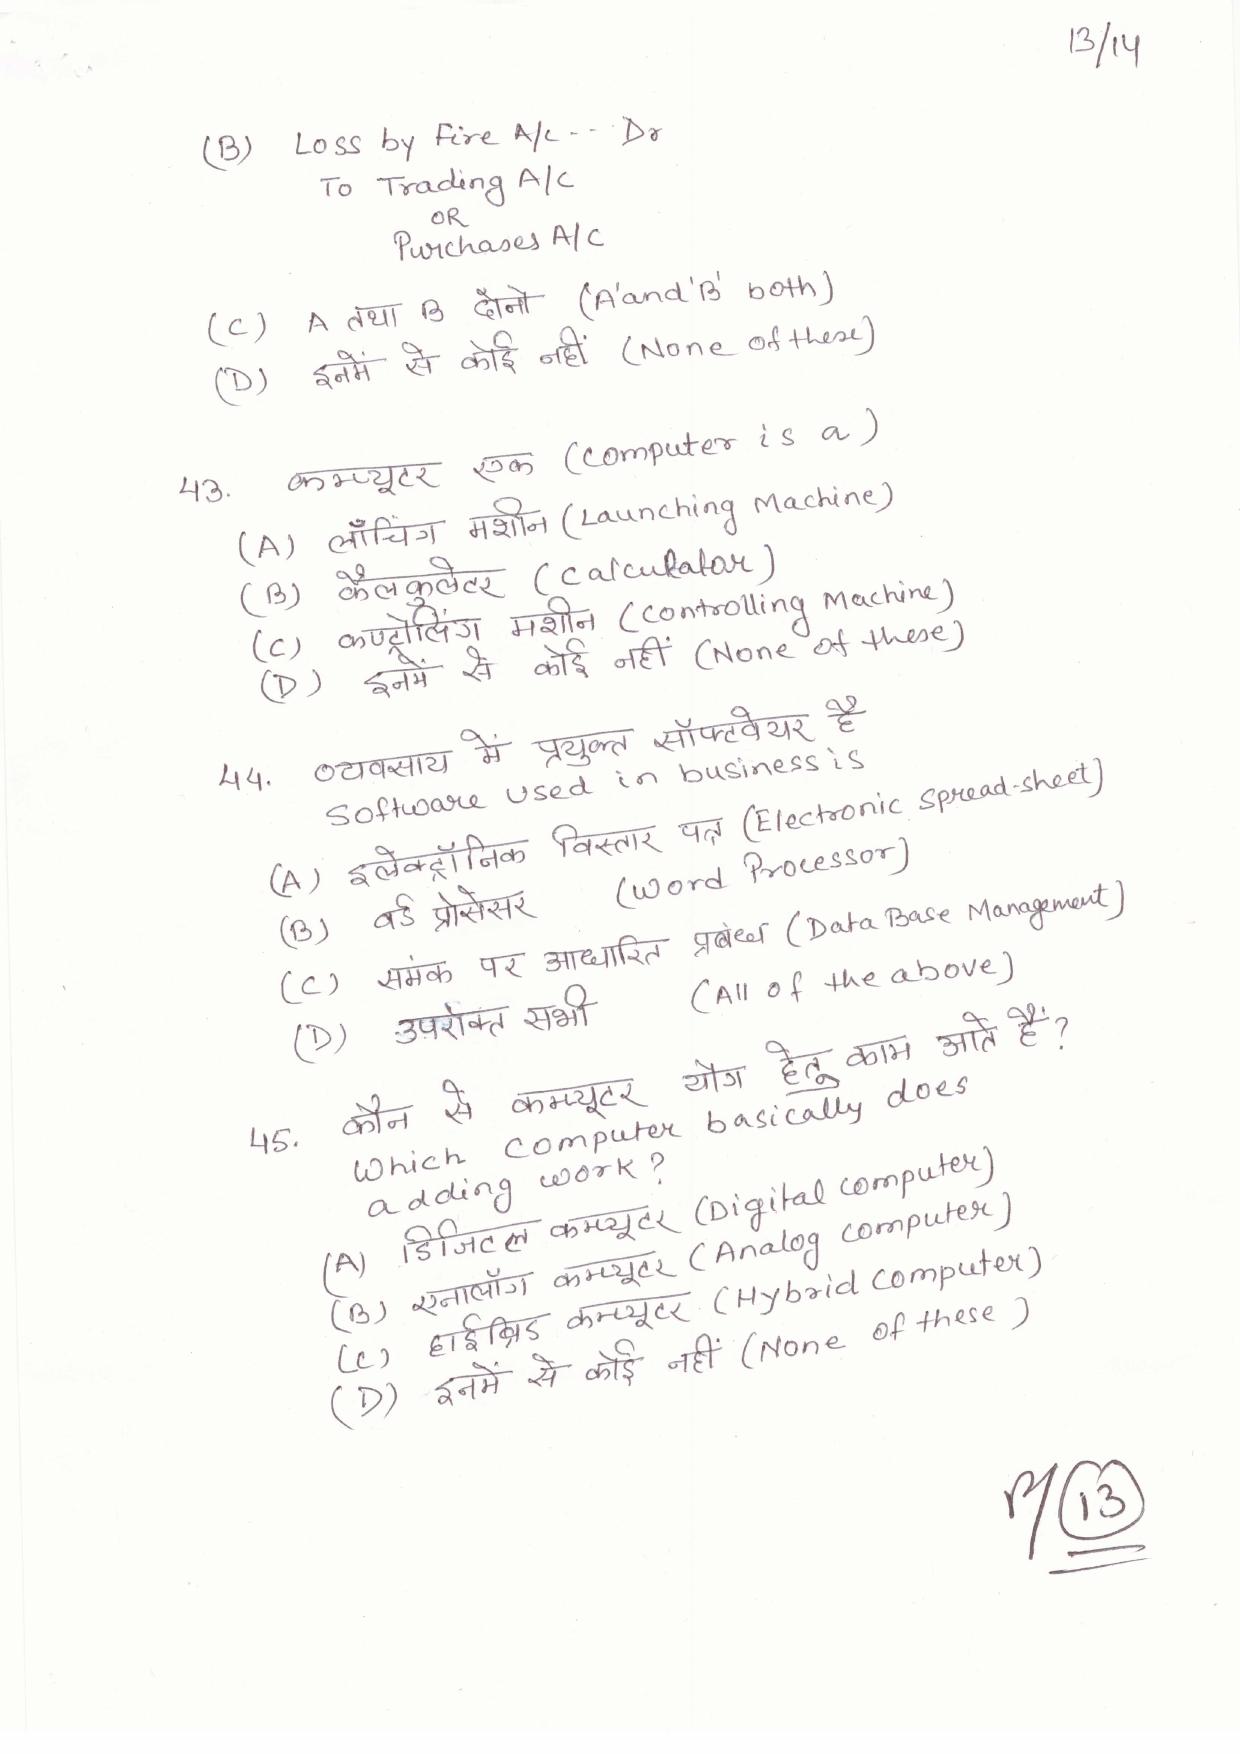 13/14
(B) Loss by Fire A/c -- Dr
To Trading A/C
OR
Purchases A/C
(C) A तथा B दोनो ('A'and'B' both)
(D) इनमें से कोई नहीं (None of these)
43. कम्प्यूटर एक (Computer is a)
(A) लाँचिंग मशीन (Launching Machine)
(B) कैलकुलेटर (Calculator)
(C) कण्ट्रोलिंग मशीन (Controlling Machine)
(D) इनमें से कोई नहीं (None of these)
44. व्यवसाय में प्रयुक्त सॉफ्टवेयर है
Software used in business is
(A) इलेक्ट्रॉनिक विस्तार पत्र (Electronic Spread-sheet)
(B) वर्ड प्रोसेसर (Word Processor)
(C) समंक पर आधारित प्रबंध (Data Base Management)
(D) उपरोक्त सभी (All of the above)
45. कौन से कम्प्यूटर योग हेतू काम आते हैं?
Which Computer basically does
adding work?
(A) डिजिटल कम्प्यूटर (Digital Computer)
(B) एनालॉग कम्प्यूटर (Analog Computer)
(C) हाईब्रिड कम्प्यूटर (Hybrid Computer)
(D) इनमें से कोई नहीं (None of these)
13